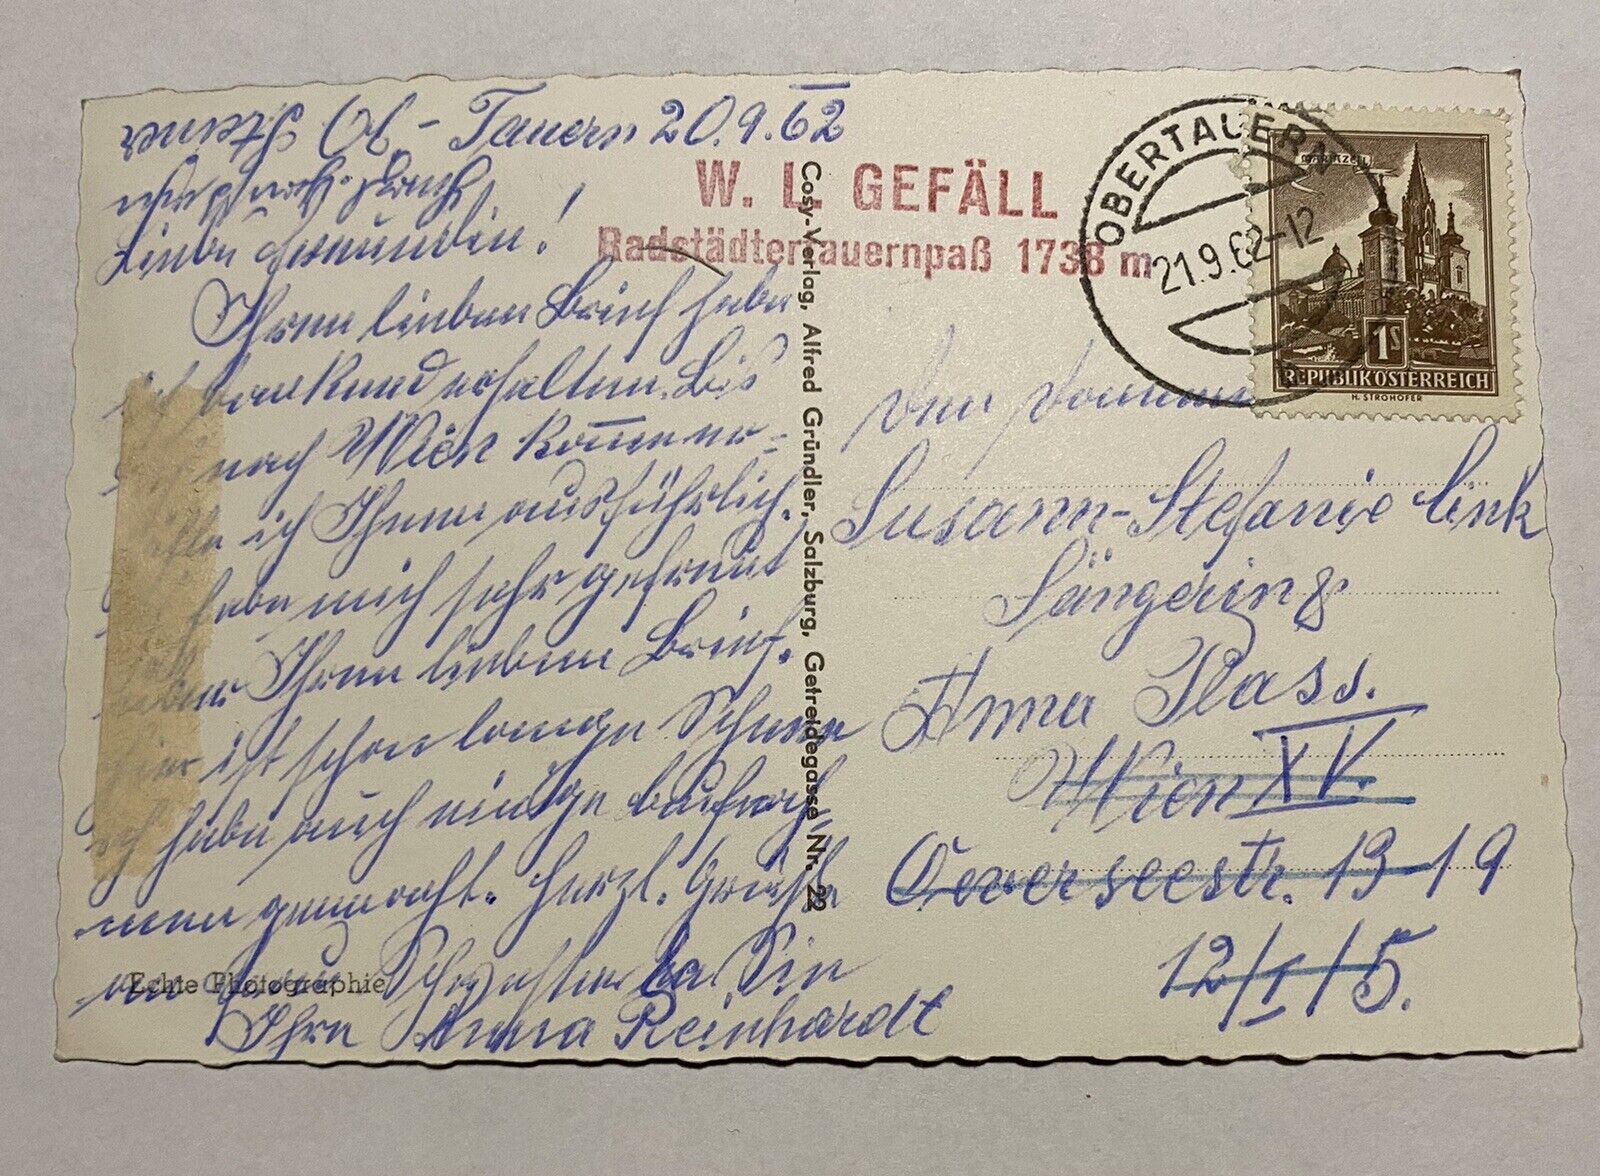 Ob-Tauern 20.9.62
Liebe Freundin!
Ihren lieben Brief habe
ich dankend erhalten. Bis
ich nach Wien komme er-
ich Ihnen ausführlich.
habe mich sehr gefreut
über Ihren lieben Brief.
Hier ist schon lange Schnee
Ich habe auch einige
gemacht. Herzl. Grüße
an Schwester Sie
Ihre Anna Reinhardt
Steiner
Echte Photographie
Cosy-Verlag, Alfred Gründler, Salzburg, Getreidegasse Nr. 22
W. L. GEFÄLL
Radstädtertauernpaß 1738 m
OBERTAUERN
21.9.62-12
MARIAZELL
1S
REPUBLIK ÖSTERREICH
H. STROHOFER
Susann-Stefanie Link
Sängerin &
Anna Plass.
Wien XV.
Oeverseestr. 13-19
12/I/5.